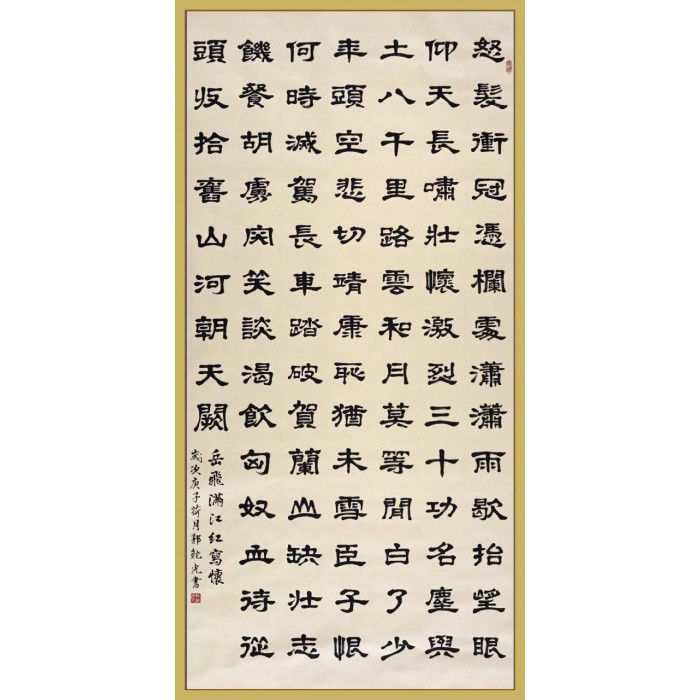 怒髮衝冠憑欄處瀟瀟雨歇抬望眼
仰天長嘯壯懷激烈三十功名塵與
土八千里路雲和月莫等閒白了少
年頭空悲切靖康恥猶未雪臣子恨
何時滅駕長車踏破賀蘭山缺壯志
饑餐胡虜肉笑談渴飲匈奴血待從
頭收拾舊山河朝天闕
岳飛滿江紅寫懷
歲次庚子荷月郭光書